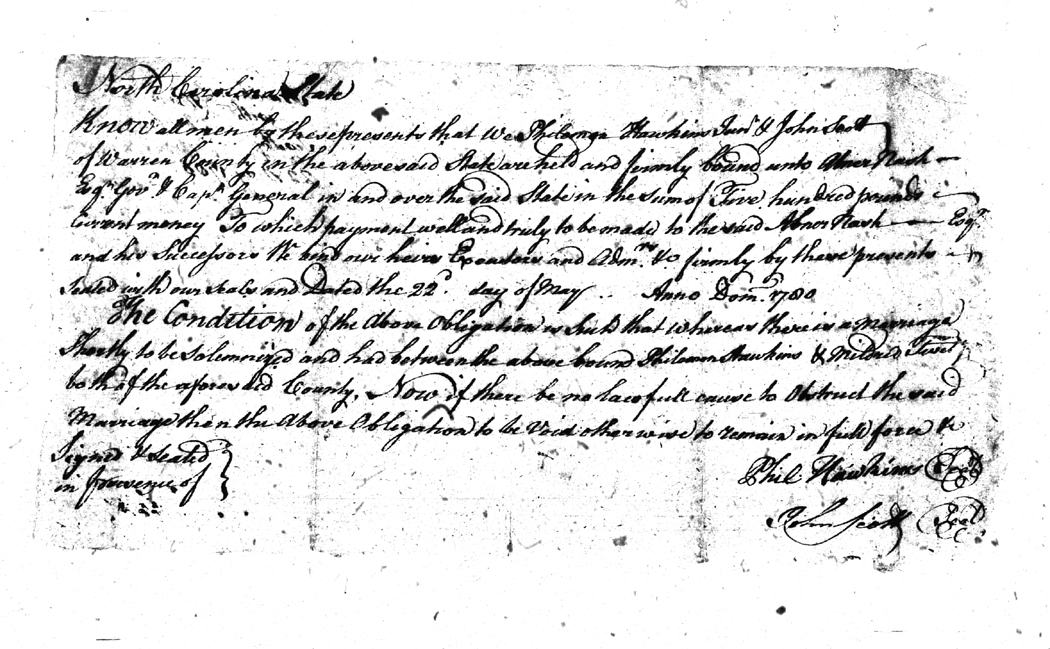 North Carolina State
Know all men by these presents that We Philemon Hawkins Junr & John Scott
of Warren County in the above said State are held and firmly bound unto Abner Nash
Esqr Govr & Capn General in and over the said State in the sum of Five hundred pounds
Current money To which payment well and truly to be made to the said Abner Nash Esqr
and his Successors We bind our heirs Executors and Admrs &c firmly by these presents
Sealed with our Seals and Dated the 22d day of May Anno Domi 1780
The Condition of the Above Obligation is Such that whereas there is a marriage
Shortly to be Solemnized and had between the above bound Philemon Hawkins & Mildred
both of the aforesaid County, Now if there be no lawfull cause to Obstruct the said
Marriage then the Above Obligation to be Void otherwise to remain in full force &
Signed & Sealed
in presence of
Phil Hawkins Seal
John Scott Seal